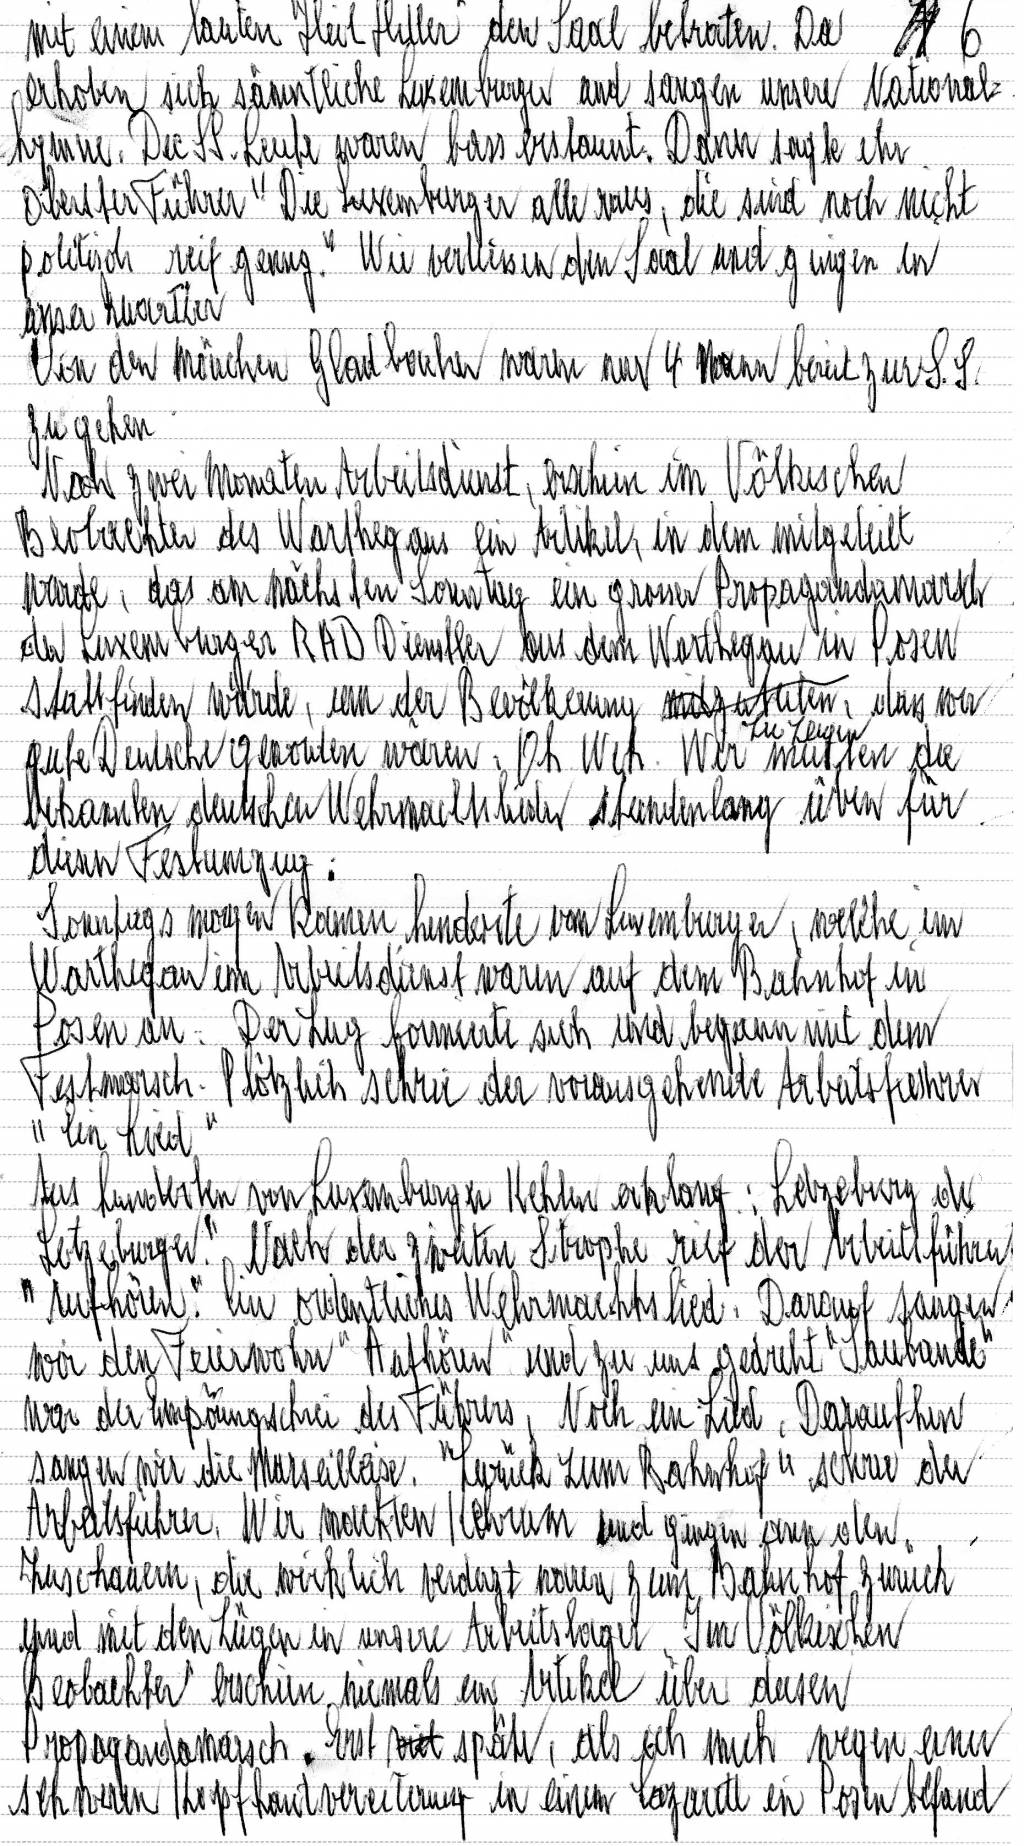 mit einem lauten "Heil Hitler" den Saal betraten. Da 6
erhoben sich sämmtliche Luxemburger und sangen unsere National=
hymne. Die SS. Leute waren bass erstaunt. Dann sagte ihr
oberster Führer "Die Luxemburger alle raus, die sind noch nicht
politisch reif genug." Wir verliessen den Saal und gingen in
unser Quartier
Von den Mönchen Gladbacher waren nur 4 Mann bereit zur S.S.
zu gehen
Nach zwei Monaten Arbeitsdienst, erschien im Völkischen
Beobachter des Warthegaus ein Artikel, in dem mitgeteilt
wurde, das am nächsten Sonntag ein grosser Propagandamarsch
der Luxemburger RAD Dienstler aus dem Warthegau in Posen
stattfinden würde, um der Bevölkerung mitzuteilen, dass wir
zu zeigen
gute Deutsche geworden wären. Oh Weh. Wir mussten die
bekannten deutschen Wehrmachtslieder stundenlang üben für
diesen Festumzug.
Sonntags morgen kamen hunderte von Luxemburger, welche im
Warthegau im Arbeitsdienst waren auf dem Bahnhof in
Posen an. Der Zug formierte sich und begann mit dem
Festmarsch. Plötzlich schrie der vorausgehende Arbeitsfuehrer
"Ein Lied"
Aus hunderten von Luxemburger Kehlen erklang: Letzeburg de
Letzeburger." Nach der zweiten Strophe rief der Arbeitsführer
"Aufhören." Ein ordentliches Wehrmachtslied. Darauf sangen
wir den Feierwohn "Aufhören" und zu uns gedreht "Saubande"
war der Empörungschrei des Führers, Noch ein Lied. Daraufhin
sangen wir die Marseillaise. "Zurück zum Bahnhof" schrie der
Arbeitsführer. Wir machten Kehrum und gingen an den
Zuschauern, die wirklich verdutzt waren zum Bahnhof zurück
und mit den Zügen in unsere Arbeitslager. Im Völkischen
Beobachter" erschien niemals ein Artikel über diesen
Propagandamarsch. Erst später, als ich mich wegen einer
schweren Kopfhautvereiterung in einem Lazarett in Posen befand